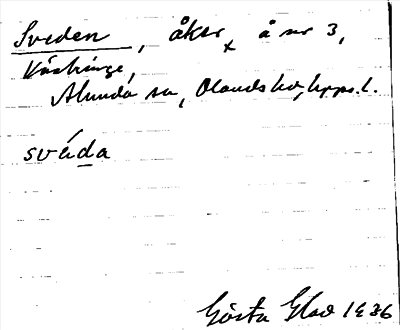 Sveden, åker å nr 3,
Alunda sn, Olands hd, Upps. l.
svéda
Gösta Glad 1936